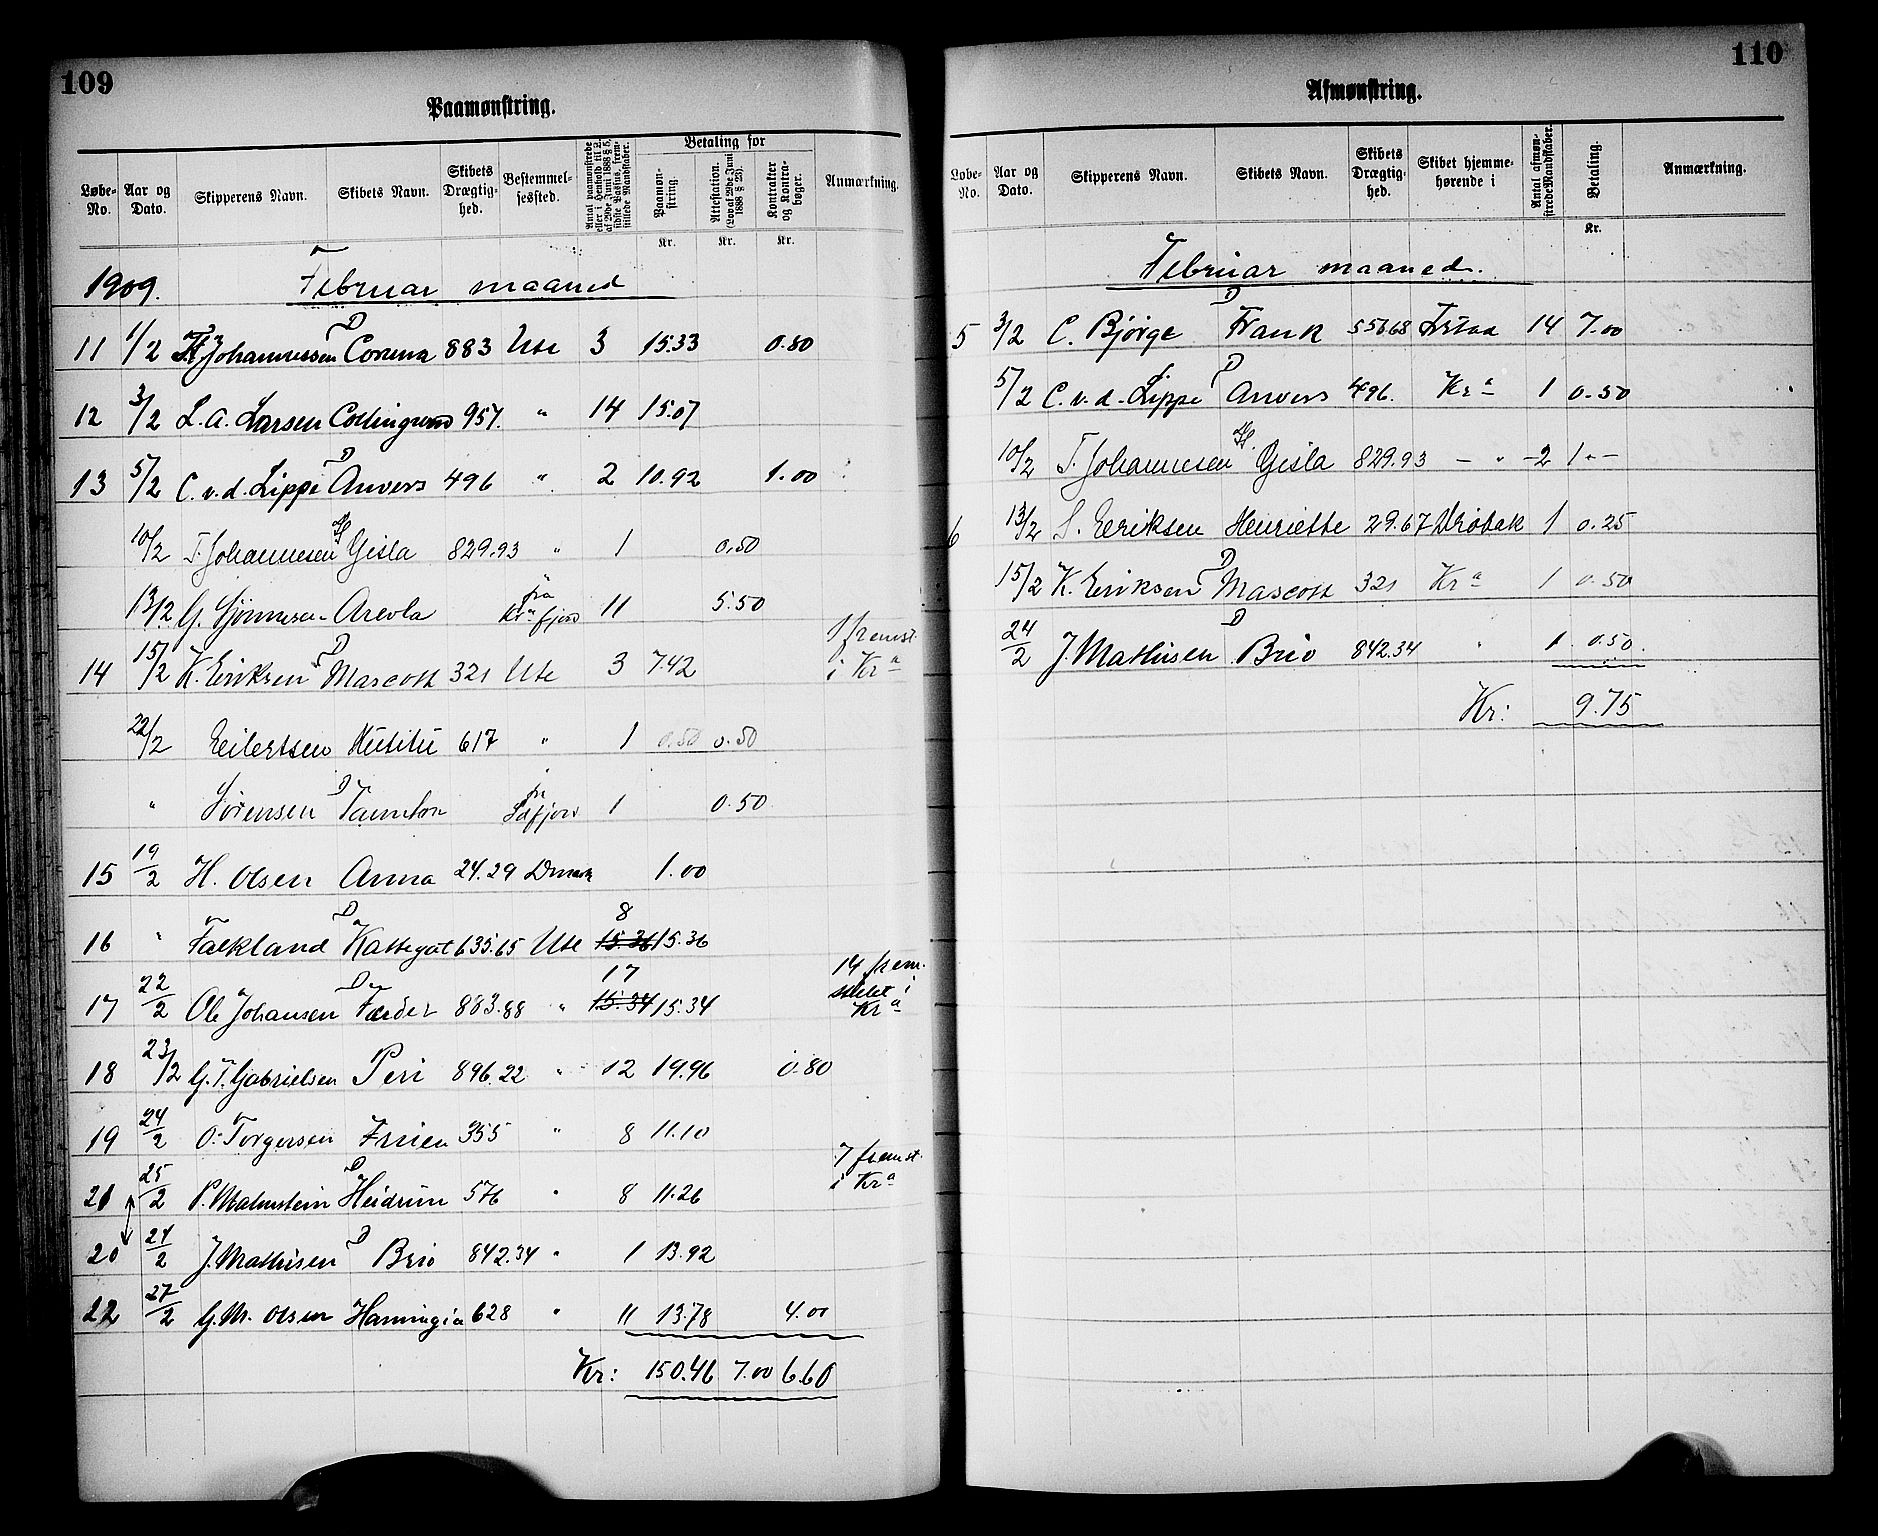 109
Paamønstring.
Løbe-No. Aar og Dato. Skipperens Navn. Skibets Navn. Skibets Drægtighed. Bestemmelsessted. Antal paamønstrede eller i Henhold til 2. af 29de Juni 1888 § 5, sidste Passus, fremstillede Mandskaber. Betaling for Paamønstring. Attestation. (Lov af 29de Juni 1888 § 23). Kontrakter og Kontrabøger. Anmærkning.
Kr. Kr. Kr.
1909. Februar maaned
11 1/2 Johannessen D Corona 883 Ute 3 15.33 0.80
12 3/2 L. A. Larsen Collingwood 957. " 14 15.07
13 5/2 C. v. d. Lippe D Anvers 496 " 2 10.92 1.00
10/2 T. Johannesen Gisla 829.93 " 1 0.50
13/2 G. Areola fra Kr.a fjord 11 5.50
14 15/2 K. Eriksen D Mascott 321 Ute 3 7.42 1 fremst. i Kr a
22/2 Eilertsen 617 " 1 0.50 0.50
" Sørensen D Taunton fra fjord 1 0.50
15 19/2 H. Olsen Anna 24.29 Dmark 1.00
16 " Falkland D Kattegat 635.65 Ute 8 15.36 15.36
17 22/2 Ole Johansen D Færder 883.88 " 17 15.34 15.34 14 fremstillet i Kr a
18 23/2 G. T. Gabrielsen Peri 896.22 " 12 19.96 0.80
19 24/2 O. Torgersen Fruen 355 " 8 11.10
21 25/2 P. Malmstein D Heidrun 576 " 8 11.26 7 fremst. i Kr a
20 24/2 J. Mathisen D Brio 842.34 " 1 13.92
22 27/2 G. M. Olsen Hanningia 628 " 11 13.78 4.00
Kr: 150.46 7.00 6.60
110
Afmønstring.
Løbe-No. Aar og Dato. Skipperens Navn. Skibets Navn. Skibets Drægtighed. Skibet hjemmehørende i Antal afmønstrede Mandskaber. Betaling. Anmærkning.
Kr.
Februar maaned.
5 3/2 C. Bjørge D Frank 556.68 Frstad 14 7.00
5/2 C. v. d. Lippe D Anvers 496. Kr a 1 0.50
10/2 T. Johannesen Gisla 829.93 – " – 2 1 " –
6 13/2 S. Eriksen Henriette 29.67 Drøbak 1 0.25
15/2 K. Eriksen D Mascott 321 Kr a 1 0.50
24/2 J. Mathisen D Brio 842.34 " 1 0.50.
Kr: 9.75